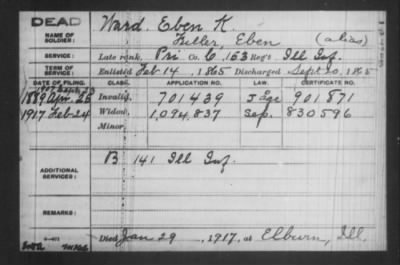 DEAD
Ward, Eben K.
NAME OF SOLDIER:
Fuller, Eben (alias)
SERVICE:
Late rank, Pri. Co. C, 153 Reg't Ill Inf.
TERM OF SERVICE
Enlisted Feb 14, 1865 Discharged Sept 20, 1865
DATE OF FILING. CLASS. APPLICATION NO. LAW. CERTIFICATE NO.
1889 Apr. 25 Invalid, 701439 901871
1917 Feb 24 Widow, 1,094,837 Sep. 830596
Minor,
B 141 Ill Inf.
ADDITIONAL SERVICES:
REMARKS:
Died Jan 29, 1917, at Elburn, Ill.